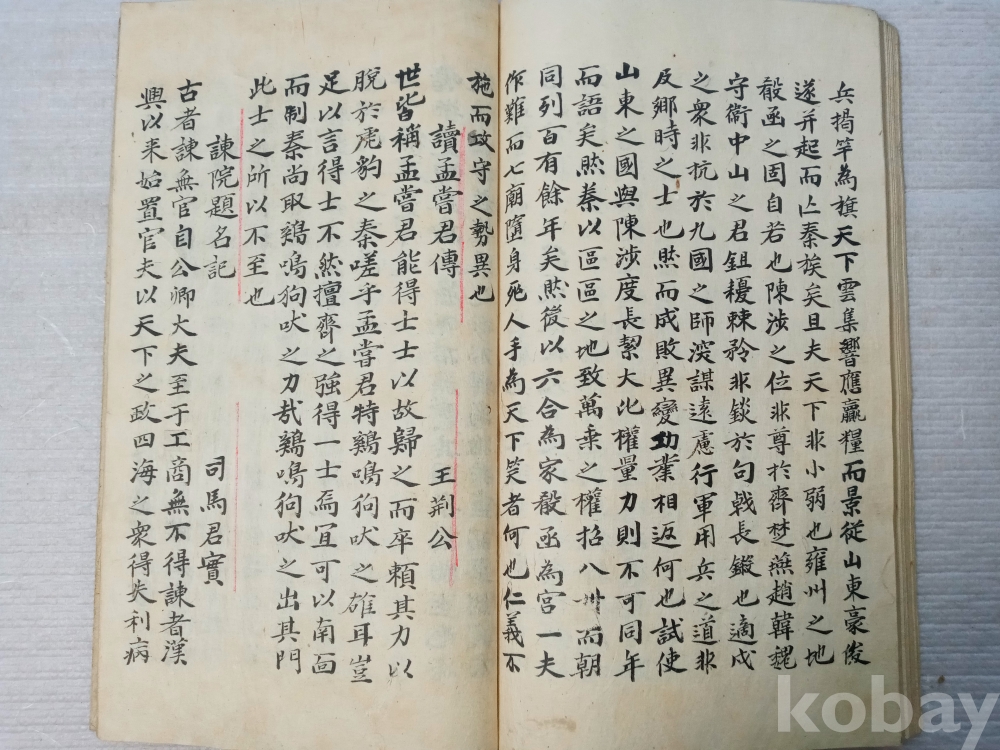 兵揭竿為旗天下雲集響應贏糧而景從山東豪俊
遂并起而亡秦族矣且夫天下非小弱也雍州之地
殽函之固自若也陳涉之位非尊於齊楚燕趙韓魏
守衛中山之君鉏耰棘矜非錟於句戟長鎩也適戍
之衆非抗於九國之師深謀遠慮行軍用兵之道非
及鄉時之士也然而成敗異變功業相返何也試使
山東之國與陳涉度長絜大比權量力則不可同年
而語矣然秦以區區之地致萬乘之權招八州而朝
同列百有餘年矣然後以六合為家殽函為宮一夫
作難而七廟墮身死人手為天下笑者何也仁義不
施而攻守之勢異也
讀孟嘗君傳 王荆公
世皆稱孟嘗君能得士士以故歸之而卒賴其力以
脫於虎豹之秦嗟乎孟嘗君特鷄鳴狗吠之雄耳豈
足以言得士不然擅齊之強得一士焉宜可以南面
而制秦尚取鷄鳴狗吠之力哉鷄鳴狗吠之出其門
此士之所以不至也
諫院題名記 司馬君實
古者諫無官自公卿大夫至于工商無不得諫者漢
興以来始置官夫以天下之政四海之衆得失利病
kobay